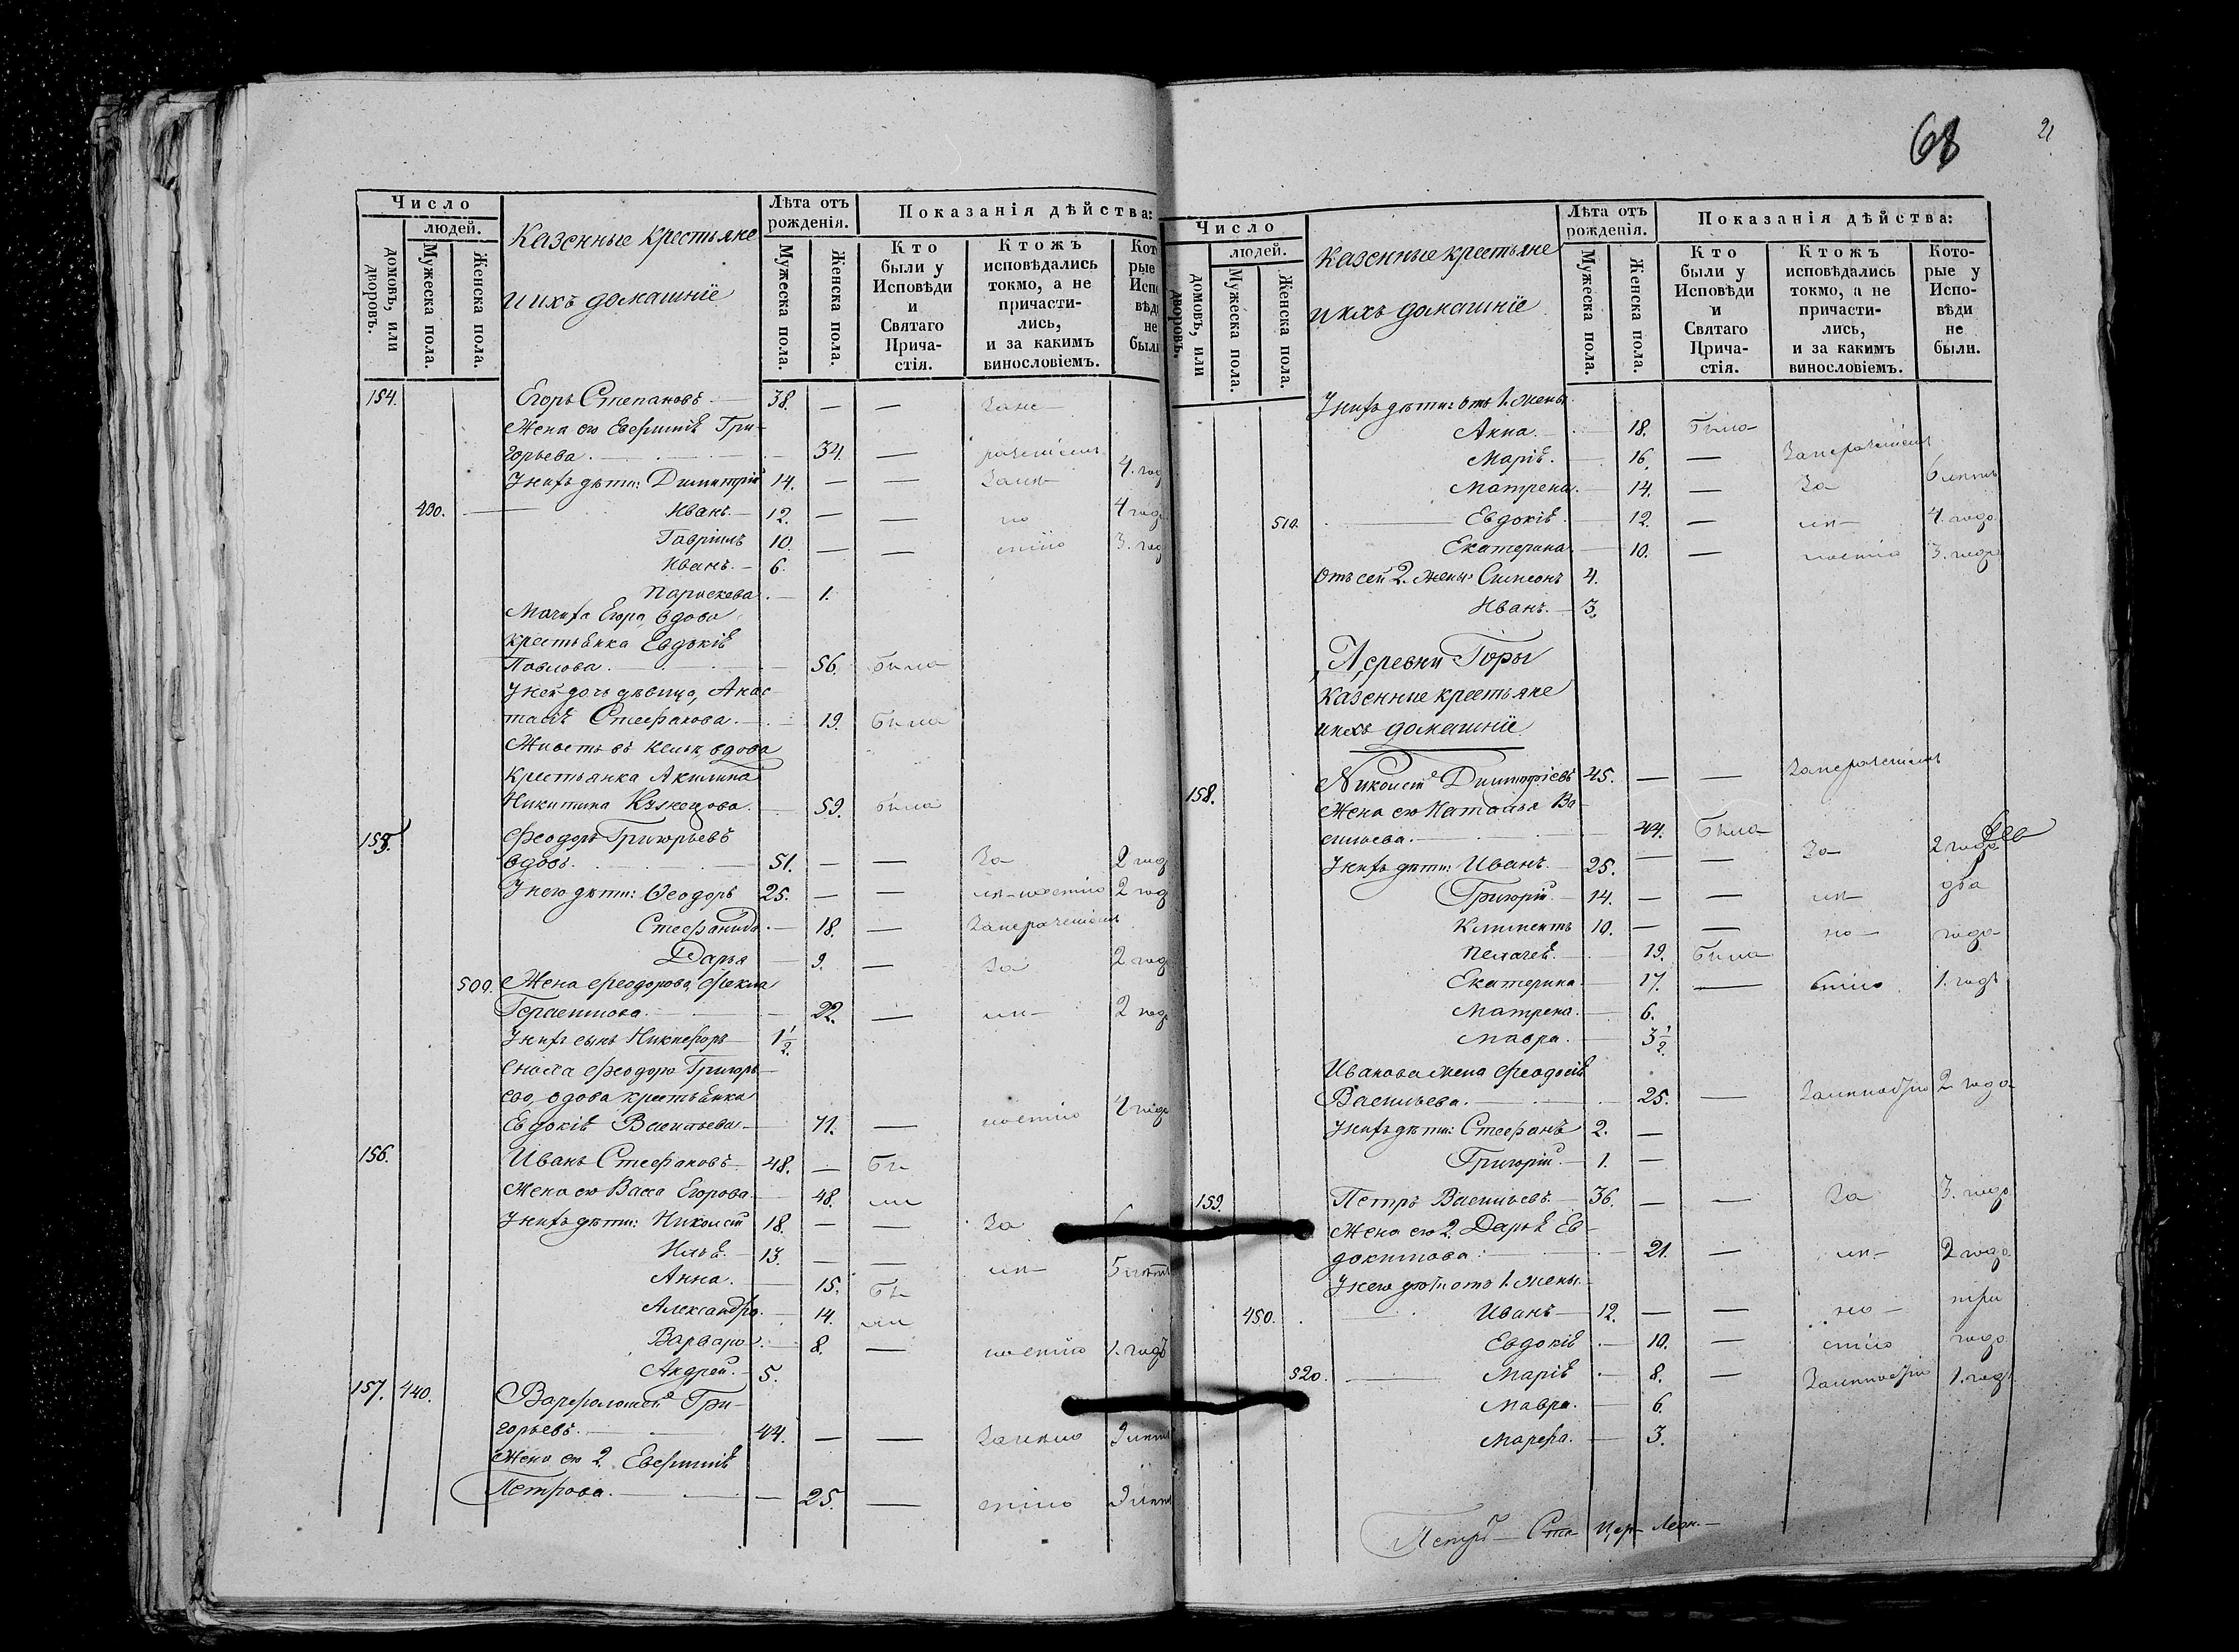 68
21
Число
людей.
домовъ, или дворовъ.
Мужеска пола.
Женска пола.
Казенные крестьяне
и ихъ домашніе
Лѣта отъ рожденія.
Мужеска пола.
Женска пола.
Показанія дѣйства:
Кто были у Исповѣди и Святаго Прича-стія.
Ктожъ исповѣдались токмо, а не причасти-лись, и за какимъ винословіемъ.
154. Егоръ Степановъ. 38. — —
Жена его Евфимія Гри-
горьева. 34. —
У нихъ дѣти: Димитрій 14. — —
430. Иванъ. 12. — —
Гавріилъ 10. — —
Иванъ. 6.
Параскева. 1.
Мачиха Егора, вдова
крестьянка Евдокія
Павлова. 56. была
У ней дочь дѣвица, Анас-
тасія Стефанова. 19. была
Живетъ въ кельи, вдова
крестьянка Акилина
Никитина Кузнецова. 59. была
155. Феодоръ Григорьевъ
вдовъ. 51. — — За 2 год
У него дѣти: Феодоръ 25. — — 2 год
Стефанида. 18. —
Дарья 9. — за 2 год
500. Жена Феодорова, Фекла
Герасимова. 22. — 2 год
У нихъ сынъ Никифоръ 1 1/2.
Сноха Феодора Григорь-
ева, вдова крестьянка
Евдокія Васильева. 41. —
156. Иванъ Стефановъ. 48. — Бы
Жена его Васса Егорова. 48. ли
У нихъ дѣти: Николай 18. — — За
Илья. 13. — — 5 лѣтъ
Анна. 15. Бы
Александра. 14. ли
Варвара. 8. — 1. годъ
Андрей. 5.
157. 440. Варфоломей Гри-
горьевъ. 44. — —
Жена его 2. Евфимія
Петрова. 25. —
Число
людей.
домовъ, или дворовъ.
Мужеска пола.
Женска пола.
Казенные крестьяне
и ихъ домашніе
Лѣта отъ рожденія.
Мужеска пола.
Женска пола.
Показанія дѣйства:
Кто были у Исповѣди и Святаго Прича-стія.
Ктожъ исповѣдались токмо, а не причасти-лись, и за какимъ винословіемъ.
Кото-рые у Испо-вѣди не были.
У нихъ дѣти: отъ 1. жены
Анна. 18. Была
Марія. 16. —
Матрена. 14. — За 6 лѣтъ
510. Евдокія. 12. — 4. года
Екатерина. 10. — 3. года
Отъ сей 2. жены Симеонъ 4.
Иванъ. 3.
Деревни Горы
казенные крестьяне
и ихъ домашніе
158. Николай Димитріевъ 45. — —
Жена его Наталья Ва-
сильева. 44. Была
У нихъ дѣти: Иванъ. 25. — — За 2 года
Григорій. 14. — — два
Климентъ 10. — — года
Пелагея. 19. Была
Екатерина. 17. — 1. годъ
Матрена. 6.
Мавра. 3 1/2.
Иванова жена Феодосія
Васильева. 25. — 2 года
У нихъ дѣти: Стефанъ 2. —
Григорій. 1. —
159. Петръ Васильевъ. 36. — — За 3. года
Жена его 2. Дарья Ев-
докимова. 21. — 2 года
У него дѣти отъ 1. жены.
450. Иванъ 12. — — три
Евдокія 10. — года
520. Марія 8. — 1. годъ
Мавра. 6.
Марфа. 3.